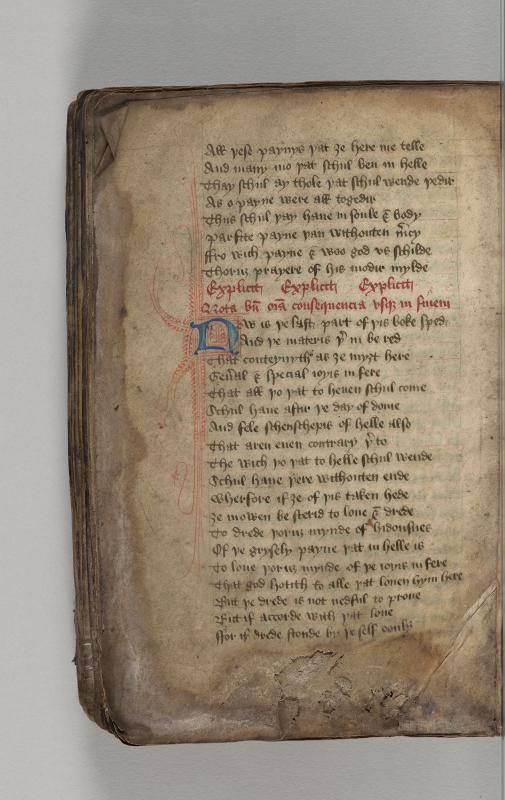 All þese paynys þat ȝe here me telle
And many mo þat schul ben in helle
Thay schul ay thole þat schul wende þedir
As o payne were all togedir
Thus schul þay haue in soule & body
Parfite payne þan withouten m̄cy
ffro wich payne & woo god vs schilde
Thoruȝ prayere of his modir mylde
Explicit Explicit Explicit
Nota bn̄ oīa consequencia vsqȝ in finem
Now is þe last part of þis boke sped
And þe materis þ͛ in be red
That conteynyth as ȝe myȝt here
Gen͛al & special ioyis in fere
That all þo þat to heuen schul come
Schul haue aftur þe day of dome
And fele schenschepis of helle also
That aren euen contrary þ͛ to
The wich þo þat to helle schul wende
Schul haue þere withouten ende
Wherfore if ȝe of þis taken hede
Ȝe mowen be sterid to loue & drede
To drede þoruȝ mynde of hidousnes
Of þe grysely payne þat in helle is
To loue þoruȝ mynde of þe ioyis in fere
That god hotith to alle þat louen hym here
But þe drede is not nedful to proue
But if accorde with þat loue
ffor if drede stonde by þe self oonly